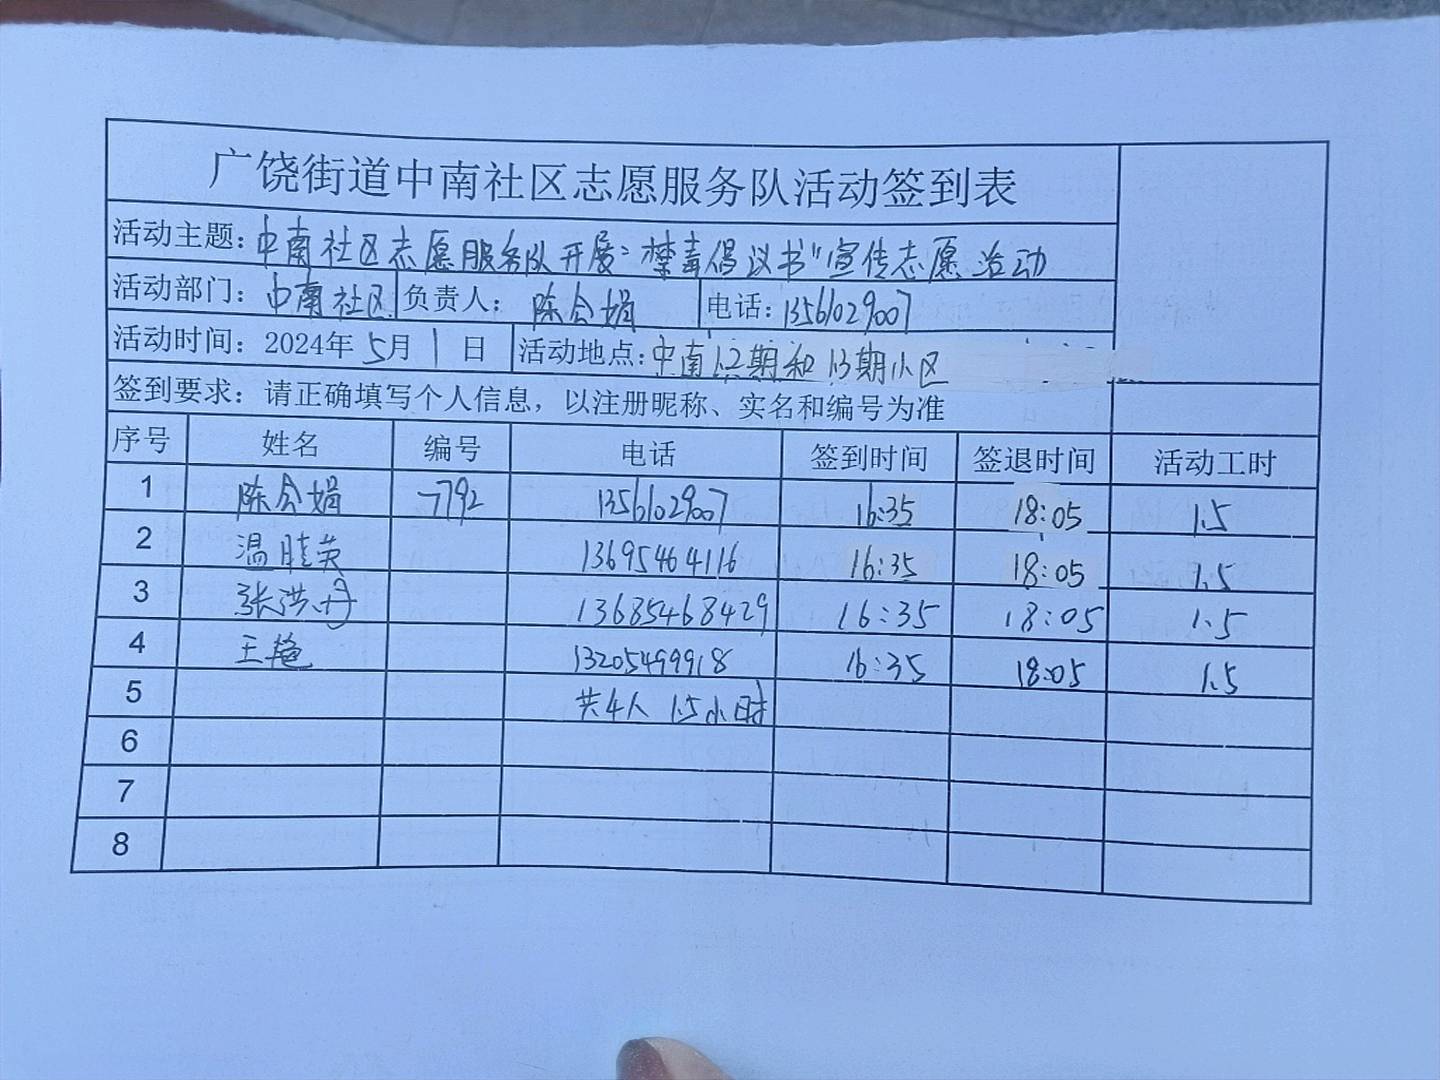 广饶街道中南社区志愿服务队活动签到表
活动主题：中南社区志愿服务队开展“禁毒倡议书”宣传志愿活动
活动部门：中南社区 负责人：陈会娟 电话：13561029007
活动时间：2024年5月1日 活动地点：中南12期和13期小区
签到要求：请正确填写个人信息，以注册昵称、实名和编号为准
序号 姓名 编号 电话 签到时间 签退时间 活动工时
1 陈会娟 7792 13561029007 16:35 18:05 1.5
2 温 英 13695464116 16:35 18:05 1.5
3 张洪丹 13685468429 16:35 18:05 1.5
4 王艳 13205499918 16:35 18:05 1.5
5 共4人 1.5小时
6
7
8